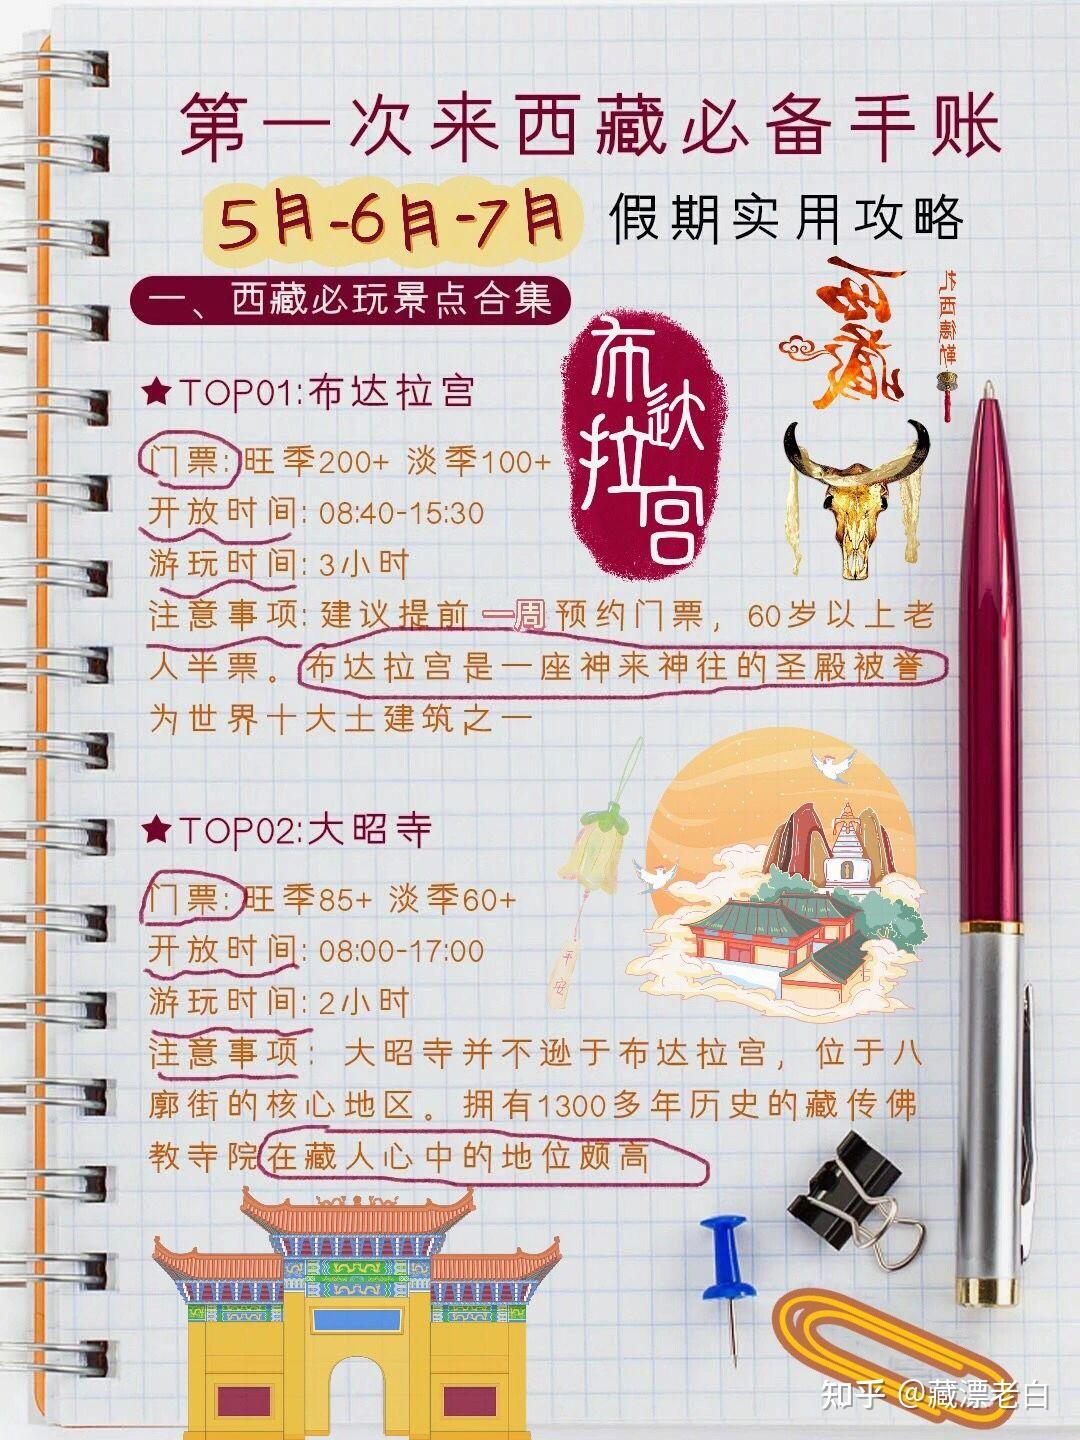 第一次来西藏必备手账
5月-6月-7月 假期实用攻略
一、西藏必玩景点合集
西藏
扎西德勒
布达拉宫
★TOP01:布达拉宫
门票: 旺季200+ 淡季100+
开放时间: 08:40-15:30
游玩时间: 3小时
注意事项: 建议提前一周预约门票，60岁以上老
人半票。布达拉宫是一座神来神往的圣殿被誉
为世界十大土建筑之一
★TOP02:大昭寺
门票: 旺季85+ 淡季60+
开放时间: 08:00-17:00
游玩时间: 2小时
平安
注意事项: 大昭寺并不逊于布达拉宫，位于八
廓街的核心地区。拥有1300多年历史的藏传佛
教寺院在藏人心中的地位颇高
知乎 @藏漂老白